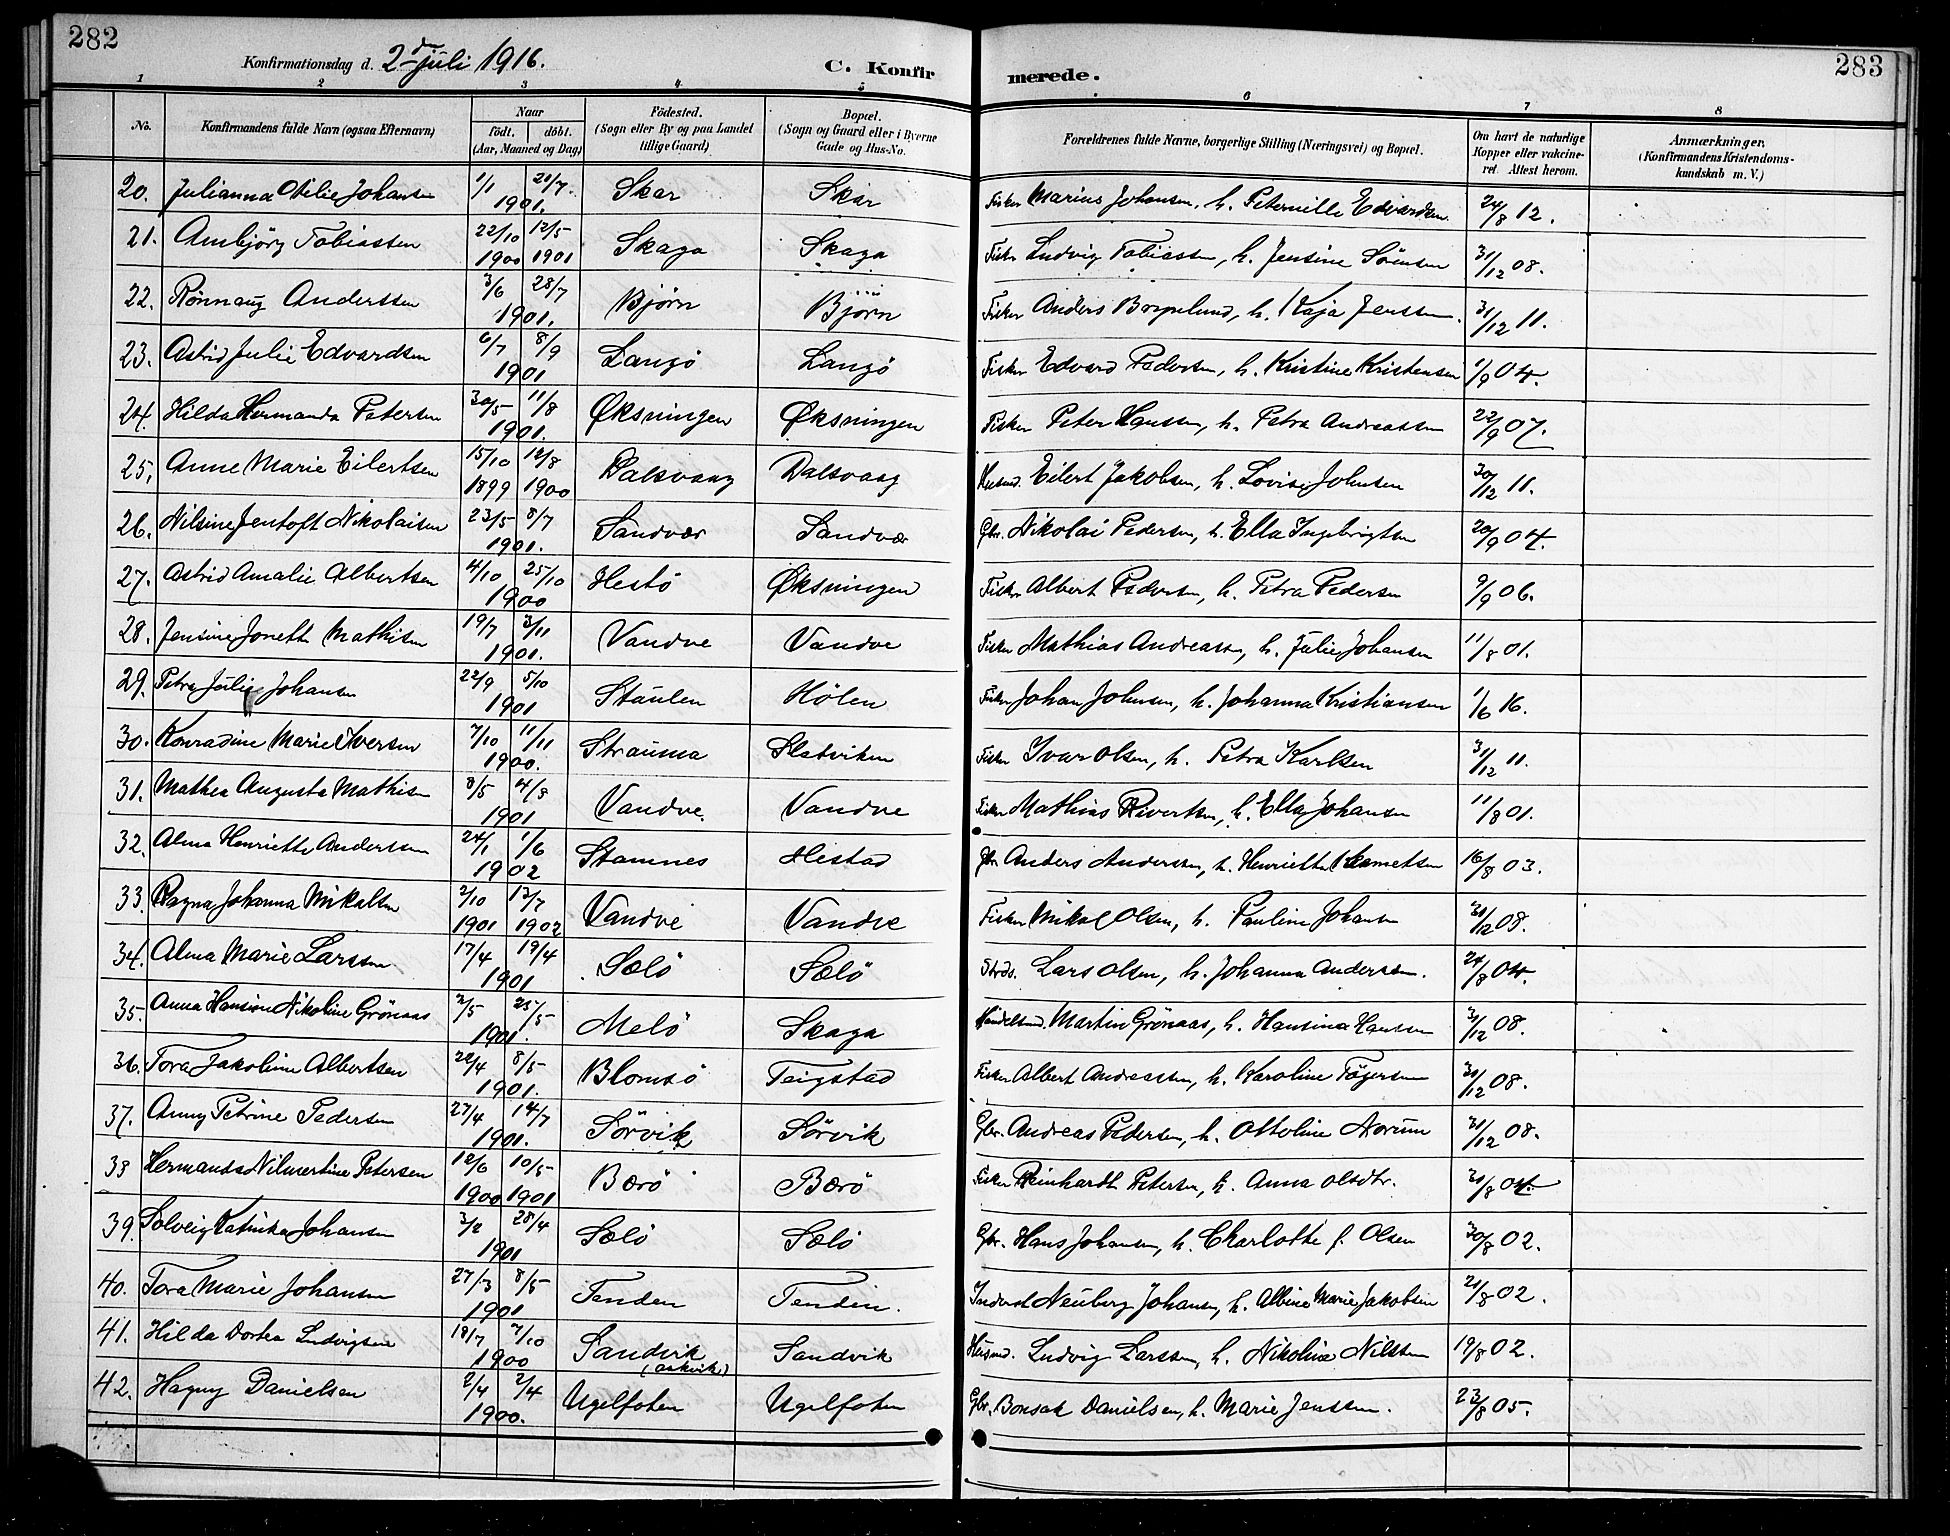 282
Konfirmationsdag d. 2den juli 1916.
C. Konfirmerede.
283
1 2 3 4 5 6 7 8
No. Konfirmandens fulde Navn (ogsaa Efternavn) Naar födt. döbt. (Aar, Maaned og Dag) Födested. (Sogn eller By og paa Landet tillige Gaard) Bopæl. (Sogn og Gaard eller i Byerne Gade og Hus-No. Forældrenes fulde Navne, borgerlige Stilling (Næringsvei) og Bopæl. Om havt de naturlige Kopper eller vakcineret. Attest herom. Anmærkninger. (Konfirmandens Kristendomskundskab m. V.)
20. Julianna Otilie Johansen 1/1 21/7 1901. Skar Skar Fisker Marius Johansen, h. Peternille Edvardsen. 24/8 12.
21. Ambjörg Tobiassen 22/10 1900 12/5 1901 Skaga Skaga Fisker Ludvig Tobiassen, h. Jensine Sörensen 31/12 08.
22. Rönnaug Anderssen 3/6 28/7 1901. Björn Björn Fisker Anders Borgelund, h. Kaja Jenssen. 31/12 11.
23. Astrid Julie Edvardsen 6/7 8/9 1901 Langö Langö Fisker Edvard Pedersen, h. Kristine Kristensen 1/9 04.
24. Hilda Hermanda Petersen 30/5 11/8 1901. Øksningen Øksningen Fisker Peter Hanssen, h. Petra Andreassen 22/9 07.
25. Anne Marie Eilertsen 15/10 1899 12/8 1900 Dalsvaag Dalsvaag Husmd. Eilert Jakobsen, h. Lovise Johnsen 30/12 11.
26. Nilsine Jentoft Nikolaisen 23/5 8/7 1901. Sandvær Sandvær Gbr. Nikolai Pedersen, h. Ella Ingebrigtsen 20/9 04.
27. Astrid Amalie Albertsen 4/10 25/10 1900 Hestö Øksningen Fisker Albert Pedersen, h. Petra Pedersen 9/9 06.
28. Jensine Jonette Mathisen 19/7 3/11 1901. Vandve Vandve Fisker Mathias Andreassen, h. Julie Johansen 11/8 01.
29. Petra Julie Johansen 22/9 5/10 1901 Staulen Hölen Fisker Johan Johnsen, h. Johanna Kristiansen 1/6 16.
30. Konradine Marie Iversen 7/10 11/11 1900. Strauma Slatviken Fisker Ivar Olsen, h. Petra Karlsen 31/12 11.
31. Mathea Augusta Mathisen 8/5 4/8 1901 Vandve. Vandve Fisker Mathias Rivertsen, h. Ella Johansen 11/8 01.
32. Alma Henriette Anderssen 24/1 1/6 1902 Stamnes Hestad Gbr Anders Anderssen, h. Henriette Klemetsen 16/8 03.
33. Ragna Johanna Mikalsen 2/10 1901 13/7 1902 Vandve Vandve Fisker Mikal Olsen, h. Pauline Johansen 31/12 08.
34. Alma Marie Larssen 17/4 19/4 1901 Sælö Sælö Strds. Lars Olsen, h. Johanna Anderssen. 24/8 04.
35. Anna Hansine Nikoline Grönaas 2/5 25/5 1901. Melö Skaga Handelsmd. Martin Grönaas, h. Hansina Hansen 31/12 08.
36. Tora Jakobine Albertsen 22/4 8/5 1901. Blomsö Teigstad Fisker Albert Andreassen, h. Karoline Tögersen 31/12 08.
37. Anny Petrine Pedersen 27/4 14/7 1901. Sörvik Sörvik Gbr. Andreas Pedersen, h. Ottoline Norum 31/12 08.
38 Hermanda Nilmertine Petersen 12/6 1900 10/5 1901 Bærö Bærö Fisker Reinhardt Petersen, h. Anna Olsdtr. 31/8 04.
39. Solveig Katinka Johansen 3/2 28/4 1901 Sælö Sælö Gbr. Hans Johansen, h. Charlotte f. Olsen 30/8 02.
40. Tora Marie Johansen 27/3 8/5 1901 Tenden Tenden. Inderst Neuberg Johansen, h. Albine Marie Jakobsen 21/8 02.
41. Hilda Dortea Ludvigsen 18/7 7/10 1900 Sandvik (askvik) Sandvik Husmd. Ludvig Larssen, h. Nikoline Nilssen 19/8 02.
42. Hagny Danielsen 2/4 2/4 1900. Ugelfoten Ugelfoten Gbr. Bonsak Danielsen, h. Marie Jenssen. 23/8 05.